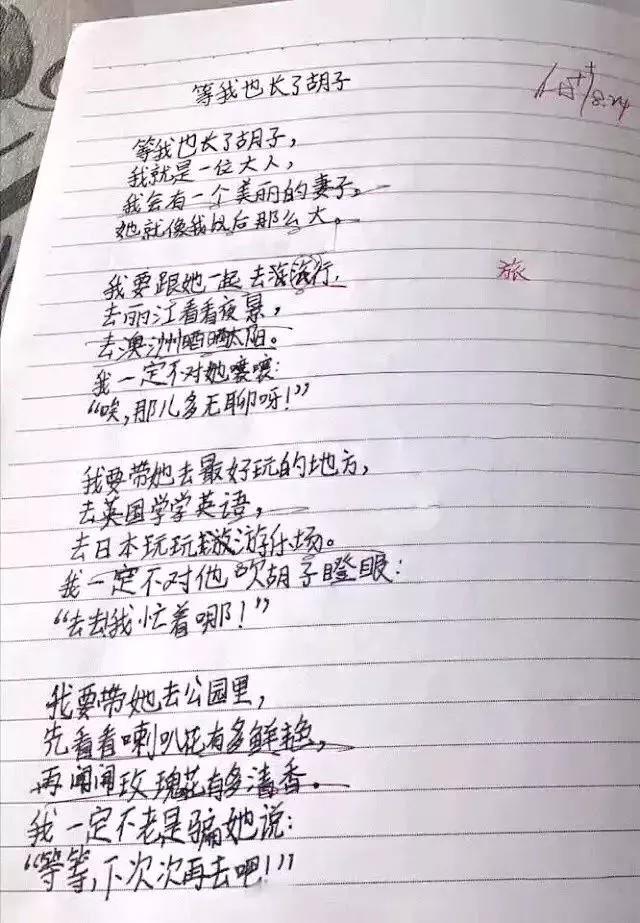 等我也长了胡子
等我也长了胡子，
我就是一位大人，
我会有一个美丽的妻子。
她就像我以后那么大。
我要跟她一起去海游行，
旅
去丽江看看夜景，
去澳洲晒晒太阳。
我一定不对她嚷嚷：
“唉，那儿多无聊呀！”
我要带她去最好玩的地方，
去英国学学英语，
去日本玩玩游乐场。
我一定不对他吹胡子瞪眼：
“去去我忙着哪！”
我要带她去公园里，
先看看喇叭花有多鲜艳，
再闻闻玫瑰花有多清香。
我一定不老是骗她说：
“等等，下次次再去吧！”